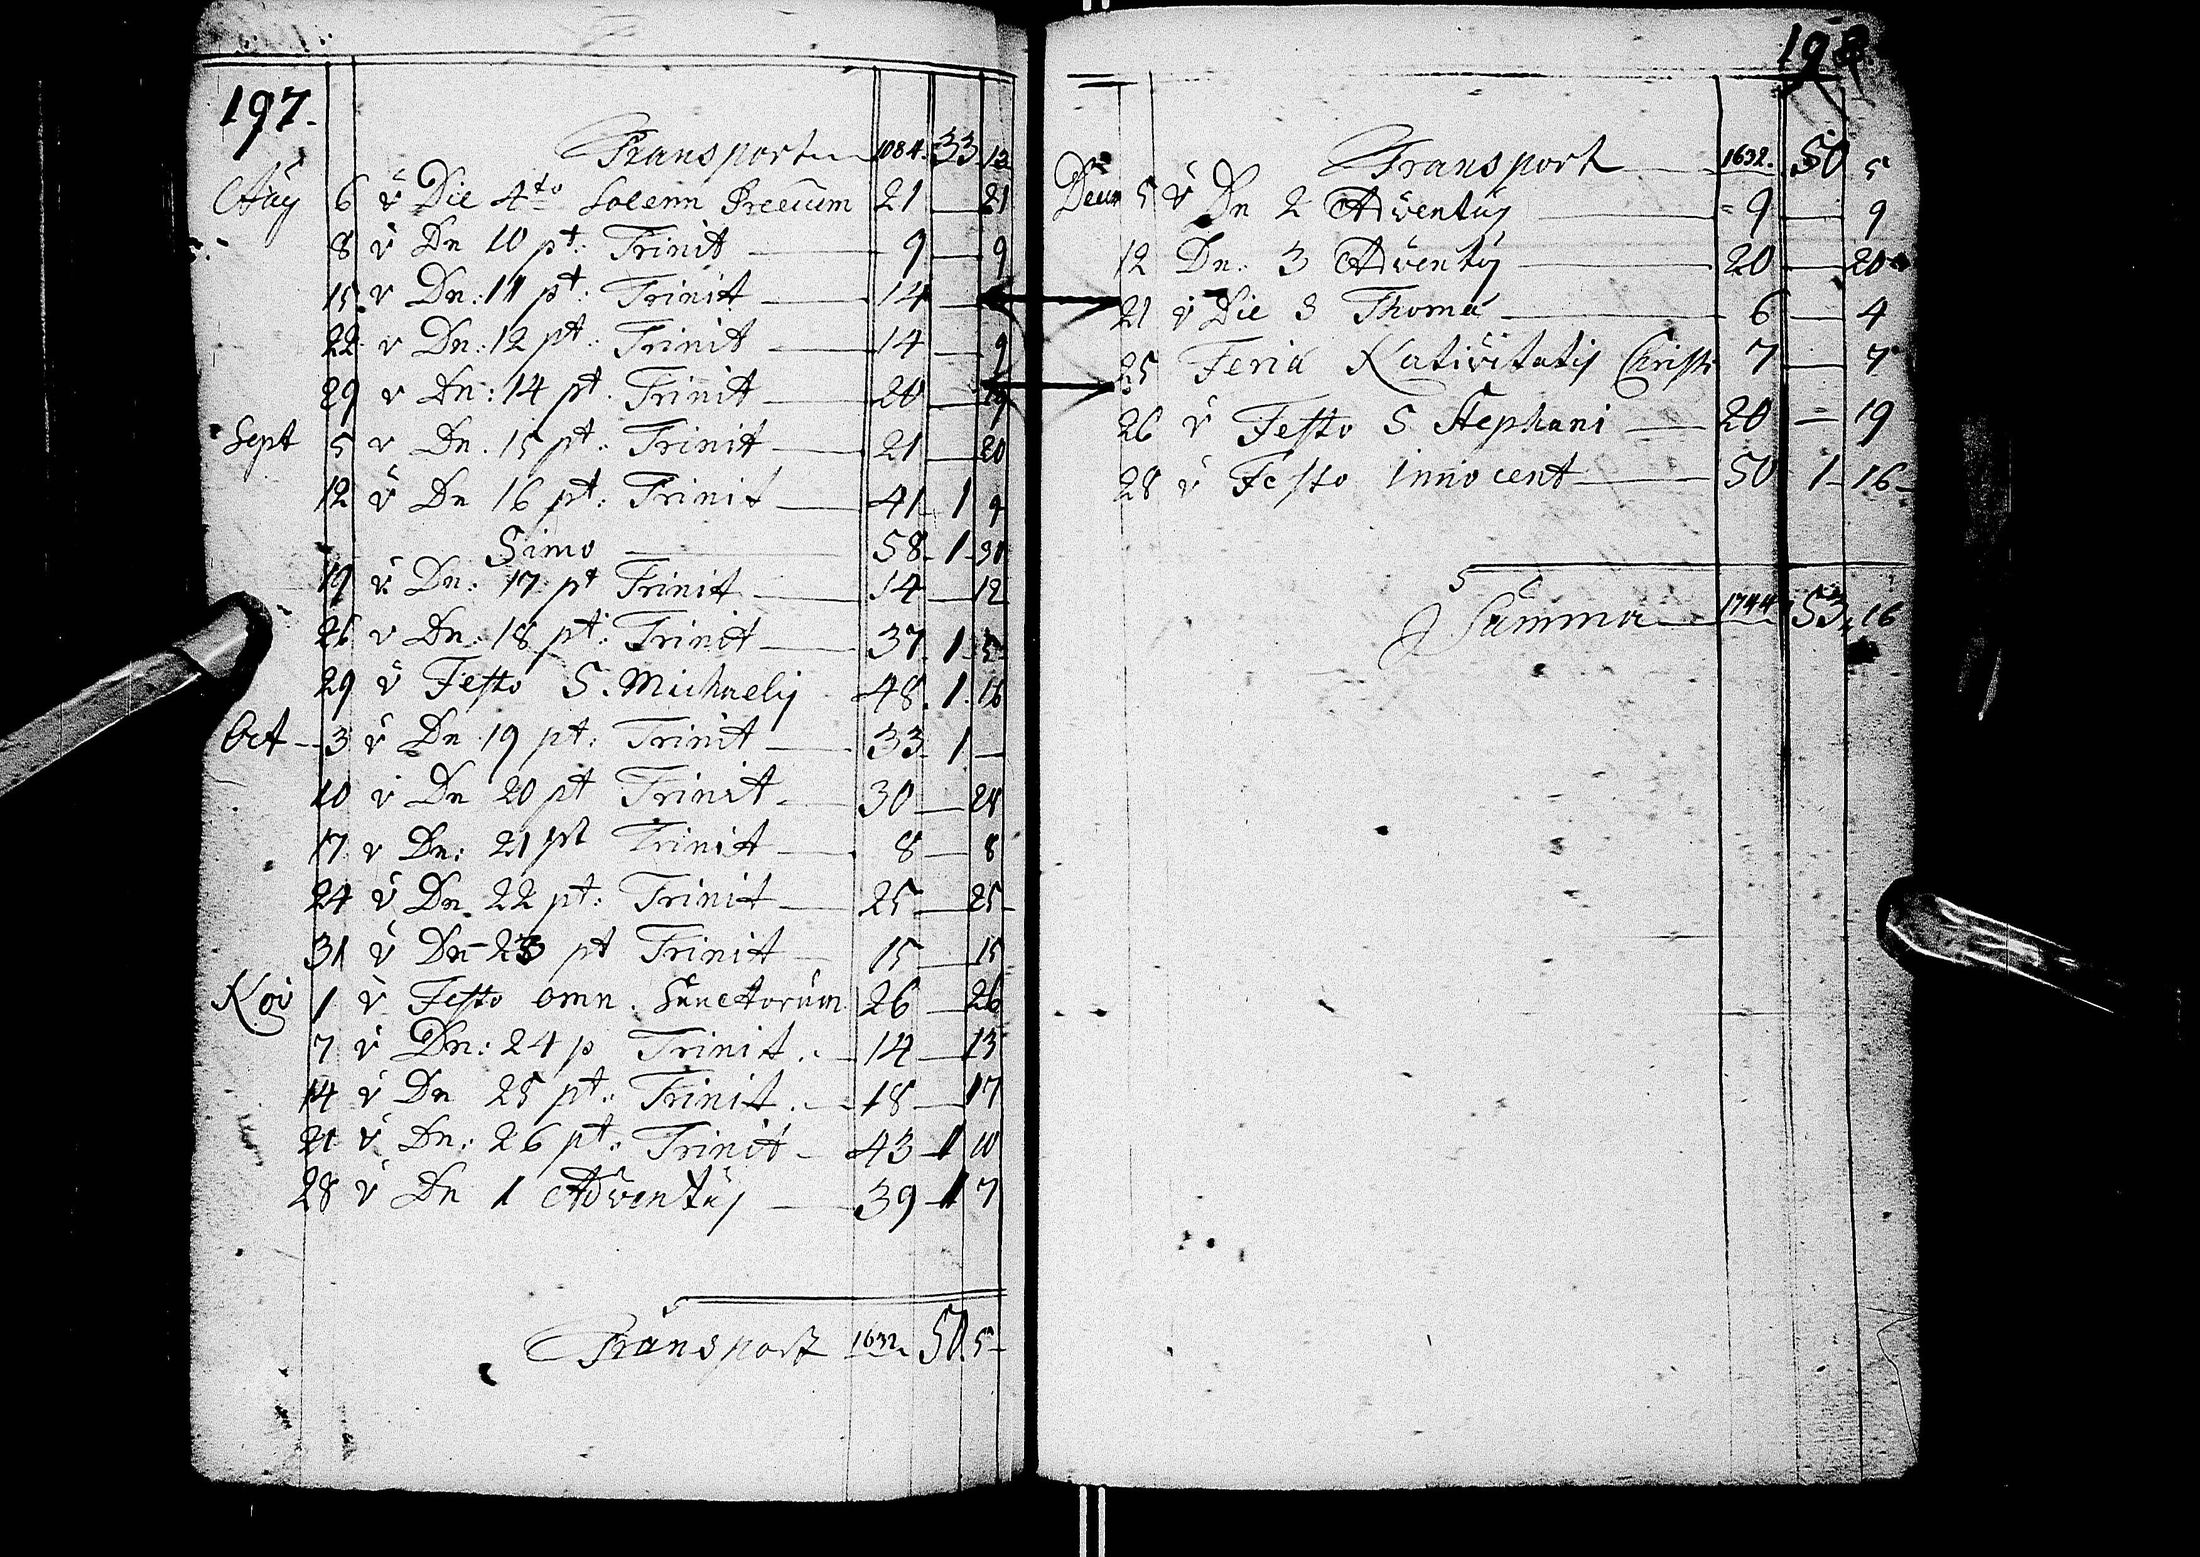 197.
Transport 1084. 33 13
Aug 6 v Die 4to Solenn Precum 21 — 21
8 v Dn 10 pt: Trinit 9 — 9
15 v Dn: 11 pt: Trinit 14 —
22 v Dn: 12 pt: Trinit 14 — 9
29 v Dn: 14 pt. Trinit 20 — 19
Sept 5 v Dn. 15 pt: Trinit 21 — 20
12 v Dn 16 pt: Trinit 41 1 9
Simo 58 1
19 v Dn: 17 pt Trinit 14 — 12
26 v Dn: 18 pt: Trinit 37. 1 5
29 v Festo S. Michaelij 48. 1. 16
Oct 3 v Dn 19 pt: Trinit 33 1 —
10 v Dn 20 pt Trinit 30 — 28
17 v Dn: 21 pt Trinit 8 — 8
24 v Dn. 22 pt: Trinit 25 — 25
31 v Dn 23 pt Trinit 15 — 15
Nov 1 v Festo omn. Sanctorum 26 — 26
7 v Dn: 24 p Trinit. 14 — 13
14 v Dn 25 pt: Trinit. 18 — 17
21 v Dn: 26 pt: Trinit 43 1 10
28 v Dn 1 Adventuj 39 1 7
Transport 1632. 50. 5
198
Transport 1632. 50 5
Decem 5 v Dn 2 Adventuj 9 — 9
12 Dn: 3 Adventuj 20 — 20
21 v Die S Thoma 6 — 4
25 Feria Nativitatij Christi 7 — 7
26 v Festo S Stephani 20 — 19
28 v Festo Innocent 50 1 16
Summa 1744 53. 16